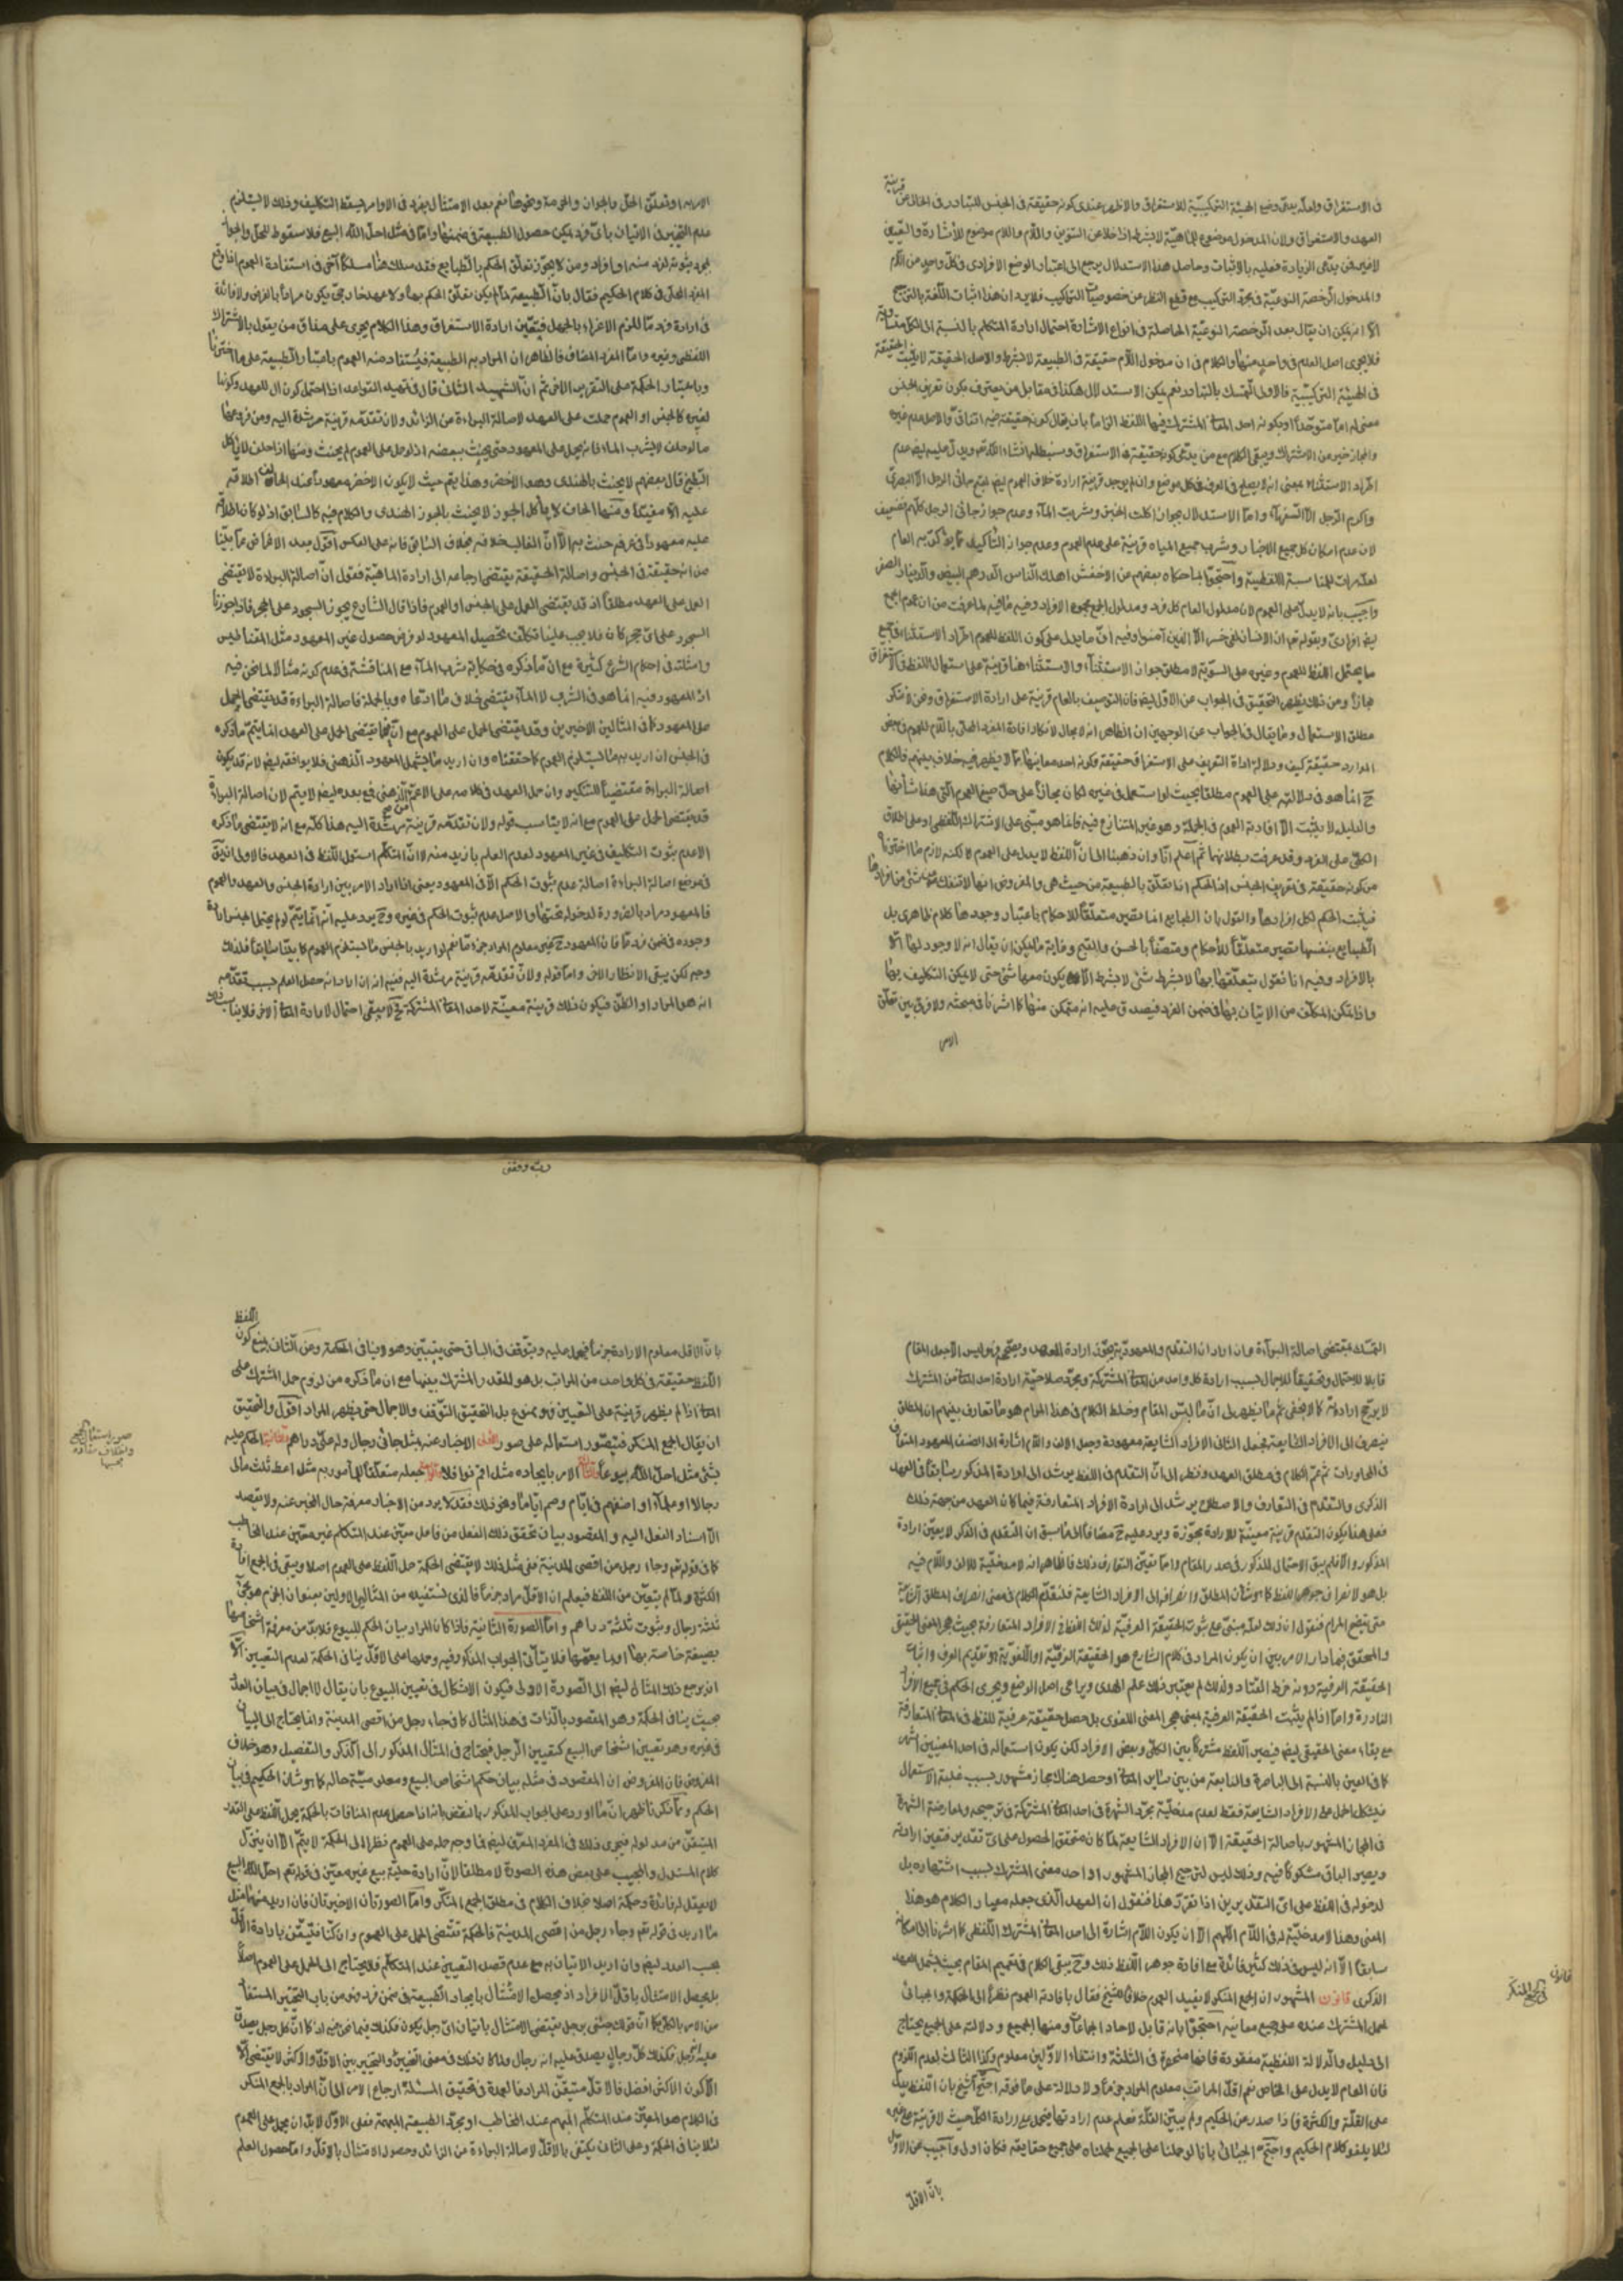 في الاستغراق ولعله يدعي وضع الهيئة التركيبية للاستغراق والاظهر عندي كونه حقيقة في الجنس للتبادر في الخالي عن قرينة
العهد والاستغراق ولان المدخول موضوع للماهية لا بشرط اذا خلا عن التنوين واللام واللام موضوع للاشارة والتعيين
لا غير فمن يدعي الزيادة فعليه بالاثبات وحاصل هذا الاستدلال يرجع الى اعتبار الوضع الافرادي في كل واحد من اللام
والمدخول
فلا يجري اصل العدم في واحد منها والكلام في ان مدخول اللام حقيقة في الطبيعة لا بشرط والاصل الحقيقة لا يثبت الحقيقة
في الهيئة التركيبية فالاولى التمسك بالتبادر نعم يمكن الاستدلال هكذا في مقابل من يعترف بكون تعريف الجنس
والمجاز خير من الاشتراك ويبقى الكلام مع من يدعي كونه حقيقة في الاستغراق وسنبطله انشاء الله تعم ويدل عليه ايضا عدم
اطراد الاستثناء بمعنى انه لا يصح في العرف في كل موضع وان لم يوجد قرينة ارادة خلاف العموم
لان عدم امكان اكل جميع الاخباز وشرب جميع المياه قرينة على عدم العموم وعدم جواز التأكيد
واجيب بانه لا يدل على العموم لان مدلول العام كل فرد ومدلول الجمع مجموع الافراد وفيه ما فيه لما عرفت من ان عموم الجمع
ايضا افرادي وبقوله تعم ان الانسان لفي خسر الا الذين آمنوا
مجازا ومن ذلك يظهر التحقيق في الجواب عن الاول ايضا فان التوصيف بالعام قرينة على ارادة الاستغراق ونحن لا ننكر
مطلق الاستعمال وما يقال في الجواب عن الوجهين ان الظاهر انه لا مجال لانكار افادة المفرد المحلى باللام للعموم في بعض
الموارد حقيقة كيف ودلالة اداة التعريف على الاستغراق حقيقة وكونه احد معانيها مما لا يظهر فيه خلاف بينهم فالكلام
ح انما هو في دلالته على العموم مطلقا بحيث لو استعمل في غيره لكان مجازا على حد صيغ العموم التي هذا شأنها
والدليل لا يثبت الا افادته العموم في الجملة وهو غير المتنازع فيه فانما هو مبني على الاشتراك اللفظي او على اطلاق
الكلي على الفرد وقد عرفت بطلانهما ثم اعلم انا وان ذهبنا الى ان اللفظ لا يدل على العموم لكنه لازم ما اخترناه
من كونه حقيقة في تعريف الجنس اذ الحكم اذا تعلق بالطبيعة من حيث هي والمفروض انها لا تنفك عن شئ من افرادها
فيثبت الحكم لكل افرادها والقول بان الطبايع انما تصير متعلقا للاحكام باعتبار وجودها كلام ظاهري بل
الطبايع بنفسها تصير متعلقا للاحكام ومتصفا بالحسن والقبح وغاية ما يمكن ان يقال انه لا وجود لها الا
بالافراد وفيه انا نقول بتعلقها بها لا بشرط شئ لا بشرط ان لا يكون معها شئ حتى لا يمكن التكليف بها
واذا تمكن المكلف من الاتيان بها في ضمن الفرد فيصدق عليه انه متمكن منها كما اشرنا في مبحثه ولا فرق بين تعلق
الامر
الامر به او تعلق الحل والجواز والحرمة ونحوها نعم بعد الامتثال بفرد في الاوامر يسقط التكليف وذلك لا يستلزم
عدم التخيير في الاتيان باي فرد يمكن حصول الطبيعة في ضمنها واما في مثل احل الله البيع فلا سقوط للحل والجواز
بمجرد ثبوته لفرد منه او افراد ومن لا يجوز تعلق الحكم بالطبايع فقد سلك هنا مسلكا آخر في استفادة العموم اذا وقع
المفرد المحلى في كلام الحكيم فقال بان الطبيعة لما لم يمكن تعلق الحكم بها ولا عهد خارجي يكون مرادا بالفرض ولا فائدة
في ارادة فرد ما للزم الاغراء بالجهل فتعين ارادة الاستغراق وهذا الكلام يجري على مذاق من يقول بالاشتراك
اللفظي وغيره واما المفرد المضاف فالظاهر ان المراد به الطبيعة فيستفاد منه العموم باعتبار الطبيعة على ما اخترنا
وباعتبار الحكمة على التقدير الاخر ثم ان الشهيد الثاني قال في تمهيد القواعد اذا احتمل كون ال للعهد وكونها
لغيره كالجنس او العموم حملت على العهد لاصالة البراءة من الزائد ولان تقدمه قرينة مرشدة اليه ومن فروعها
ما لو حلف لا يشرب الماء فانه يحمل على المعهود حتى يحنث ببعضه اذ لو حمل على العموم لم يحنث ومنها اذا حلف لا يأكل
البطيخ قال بعضهم لا يحنث بالهندي وهو الاخضر وهذا يتم حيث لا يكون الاخضر معهودا عند الحالف اطلاقه
عليه الا مقيدا ومنها الحالف لا يأكل الجوز لا يحنث بالجوز الهندي والكلام فيه كالسابق اذ لو كان اطلاقه
عليه معهودا في عرفهم حنث به الا ان الغالب خلافه بخلاف السابق فانه على العكس اقول بعد الاغماض عما بينا
من انه حقيقة في الجنس واصالة الحقيقة يقتضي ارجاعه الى ارادة الماهية فنقول ان اصالة البراءة لا تقتضي
الحمل على العهد مطلقا اذ قد يقتضي الحمل على الجنس او العموم فاذا قال الشارع يجوز السجود على الحجر فاذا جوزنا
السجود على اي حجر كان فلا يجب علينا تكلف تحصيل المعهود لو فرض حصول عين المعهود مثل المقناطيس
وامثلته في احكام الشرع كثيرة مع ان ما ذكره في حكاية شرب الماء مع المناقشة في عدم كونه مثالا لما نحن فيه
اذ المعهود فيه انما هو في الشرب لا الماء يقتضي خلاف ما ادعاه وبالجملة فاصالة البراءة قد تقتضي الحمل
على المعهود كما في المثالين الاخيرين وقد يقتضي الحمل على العموم مع ان
في الجنس ان اريد به ما يستلزم العموم كما حققناه وان اريد ما يشمل المعهود الذهني فلا يوافقه ايضا لانه قد يكون
قد يقتضي الحمل على العموم مع انه لا يناسب قوله ولان تقدمه قرينة مرشدة اليه هذا كله مع انه لا يقتضي ما ذكره
الا عدم ثبوت التكليف في غير المعهود لعدم العلم بازيد منه لا ان المتكلم استعمل اللفظ في العهد فالاولى ان يق
في موضع اصالة البراءة اصالة عدم ثبوت الحكم الا في المعهود يعني اذا دار الامر بين ارادة الجنس والعهد والعموم
فالمعهود مراد بالضرورة لدخوله تحتها والاصل عدم ثبوت الحكم في غيره وح يرد عليه انه انما يتم لو لم يحتمل الجنس ارادة
وجوده في ضمن فرد ما فان المعهود ح غير معلوم المراد جزما نعم لو اريد بالجنس ما يستلزم العموم كما بيناه سابقا فلذلك
وجه لكن يبقى الانظار الاخر واما قوله ولان تقدمه قرينة مرشدة اليه ففيه انه ان اراد انه حصل العلم بسبب تقدمه
انه هو المراد او الظن فيكون ذلك قرينة معينة لاحد المعاني المشتركة فح لا يبقى احتمال لارادة المعاني الاخر فلا يناسب ذلك
وبه وثقتي
التمسك بمقتضى اصالة البراءة وان اراد ان التقدم والمعهودية يجوز ارادة العهد
قابلا للاحتمال وتحقيقا للاجمال بسبب ارادة كل واحد من المعاني المشتركة ومجرد صلاحية ارادة احد المعاني من المشترك
لا يرجح ارادته كما لا يخفى ثم ما يظهر لي ان ما لبس المقام وخلط الكلام في هذا المرام هو ما تعارف بينهم ان المطلق
ينصرف الى الافراد الشايعة فجعل الثاني الافراد الشايعة معهودة وجعل الالف واللام اشارة الى الصنف المعهود المتعارف
في المحاورات ثم عمم الكلام في مطلق العهد ونظر الى ان التقدم في اللفظ يرشد الى ارادة المذكور سابقا في العهد
الذكري والتقدم في التعارف والاصطلاح يرشد الى ارادة الافراد المتعارفة فيما كان العهد من جهة ذلك
فعلى هذا يكون التقدم قرينة معينة للارادة لا مجوزة ويرد عليه ح مضافا الى ما سبق ان التقدم في الذكر لا يعين ارادة
المذكور والا فلم يبق الاحتمال المذكور في صدر المقام واما تعيين التعارف ذلك فالظاهر انه لا مدخلية للالف واللام فيه
بل هو لانصراف جوهر اللفظ كما هو شأن المطلق وانصرافه الى الافراد الشايعة فلنقدم الكلام في معنى انصراف المطلق الى الشايع
حتى يتضح المرام فنقول ان ذلك لعله مبني على ثبوت الحقيقة العرفية لذلك اللفظ في الافراد المتعارفة بحيث هجر المعنى الحقيقي
والمحقق فيما دار الامر بين ان يكون المراد في كلام الشارع هو الحقيقة العرفية او اللغوية هو تقديم العرف واثبات
الحقيقة العرفية دونه خرط القتاد ولذلك لم يعتبر ذلك علم الهدى ويراعي اصل الوضع ويجري الحكم في جميع الافراد
النادرة واما اذا لم يثبت الحقيقة العرفية بمعنى هجر المعنى اللغوي بل حصل حقيقة عرفية للفظ في المعاني المتعارفة
مع بقاء معنى الحقيقي ايضا فيصير اللفظ مشتركا بين الكلي وبعض الافراد لكن يكون استعماله في احد المعنيين اشهر
كما في العين بالنسبة الى الباصرة والنابعة من بين ساير المعاني او حصل هناك مجاز مشهور بسبب غلبة الاستعمال
فيشكل الحمل على الافراد الشايعة فقط لعدم مدخلية مجرد الشهرة في احد المعاني المشتركة في ترجيحه ولمعارضة الشهرة
في المجاز المشهور باصالة الحقيقة الا ان الافراد الشايعة لما كان متحقق الحصول على اي تقدير فتعين ارادته
ويصير الباقي مشكوكا فيه وذلك ليس لترجيح المجاز المشهور او احد معنى المشترك بسبب اشتهاره بل
لدخوله في اللفظ على اي التقديرين اذا تقرر هذا فنقول ان العهد الذي جعله معيار الكلام هو هذا
المعنى وهذا لا مدخلية له في اللام اللهم الا ان يكون اللام اشارة الى احد المعاني المشترك اللفظي كما اشرنا الى امكانه
سابقا الا انه ليس في ذلك كثير فائدة مع افادة جوهر اللفظ ذلك وح يبقى الكلام في تعميم المقام بحيث يشمل العهد
الذكري قانون المشهور ان الجمع المنكر لا يفيد العموم خلافا للشيخ فقال بافادته العموم نظرا الى الحكمة والجبائي
لحمل المشترك عنده على جميع معانيه احتجوا بانه قابل لاحاد الجماعات ومنها الجميع ودلالته على الجميع يحتاج
الى دليل والدلالة اللفظية مفقودة فانها منحصرة في الثلثة وانتفاء الاولين معلوم وكذا الثالث لعدم اللزوم
فان العام لا يدل على الخاص نعم اقل المراتب معلوم المراد جزما ولا دلالة على ما فوقه احتج الشيخ بان اللفظ يدل
على القلة والكثرة فاذا صدر من الحكيم ولم يبين القلة نعلم عدم ارادتها فيحمل على ارادة الكل حيث لا قرينة على غيره
لئلا يلغو كلام الحكيم واحتج الجبائي بانا لو حملنا على الجميع لحملناه على جميع حقايقه فكان اولى واجيب عن الاول
بان الاقل
قانون
في الجمع المنكر
بان الاقل معلوم الارادة جزما فيحمل عليه ويتوقف في الباقي حتى يتبين وهو لا ينافي الحكمة وعن الثاني بمنع كون اللفظ
اللفظ حقيقة في كل واحد من المراتب بل هو للقدر المشترك بينها مع ان ما ذكره من لزوم حمل المشترك على
المعاني اذا لم يظهر قرينة على التعيين فهو ممنوع بل التحقيق التوقف والاجمال حتى يظهر المراد اقول والتحقيق
ان يقال الجمع المنكر فيتصور استعماله على صور الاولى الاخبار عنه مثل جائني رجال وله علي دراهم والثانية الحكم عليه
بشئ مثل احل الله بيوعا والثالثة الامر بايجاده مثل اقم نوافلا والرابعة جعله متعلقا للمأمور به مثل اعط ثلث مالي
رجالا او علماء او اضفهم في ايام وصم اياما ونحو ذلك فقد لا يراد من الاخبار معرفة حال المخبر عنه ولا يقصد
الا اسناد الفعل اليه والمقصود بيان تحقق ذلك الفعل من فاعل معين عند المتكلم غير معين عند المخاطب
كما في قوله تعم وجاء رجل من اقصى المدينة ففي مثل ذلك لا يقتضي الحكمة حمل اللفظ على العموم اصلا ويبقى في الجمع افادة
الكثرة ولما لم يتعين من اللفظ فيعلم ان الاقل مراد جزما فالذي نستفيده من المثالين الاولين بعنوان الجزم هو مجئ
ثلثة رجال وثبوت ثلثة دراهم واما الصورة الثانية فاذا كان المراد بيان الحكم للبيوع فلابد من معرفة اشخاصها
بصيغة خاصة بها او بما يعمها فلا يتأتى الجواب المذكور فيه وحملها على الاقل ينافي الحكمة لعدم التعيين الا
ان يرجع ذلك المثال ايضا الى الصورة الاولى فيكون الاشكال في تعيين البيوع بان يقال لا اجمال في بيان العدد
بحيث ينافي الحكمة وهو المقصود بالذات في هذا المثال كما في جاء رجل من اقصى المدينة وانما يحتاج الى البيان
في غيره وهو تعيين اشخاص البيع كتعيين الرجل فيحتاج في المثال المذكور الى الذكر والتفصيل وهو خلاف
المفروض فان المفروض ان المقصود في مثله بيان حكم اشخاص البيع ومعلومية حاله كما هو شأن الحكيم في بيان
الحكم ومما ذكرنا ظهر ان ما اورد على الجواب المذكور بالنقض بانه اذا حصل عدم المنافات بالحكمة بحمل اللفظ على القدر
المتيقن من مدلوله فيجري ذلك في المفرد المعرف ايضا فما وجه حمله على العموم نظرا الى الحكمة لا يتم الا ان ينزل
كلام المستدل والمجيب على بعض هذه الصورة لا مطلقا لان ارادة حلية بيع غير معين في قوله تعم احل الله البيع
لا يعقل له فائدة وحكمة اصلا بخلاف الكلام في مطلق الجمع المنكر واما الصورتان الاخيرتان فان اريد منهما مثل
ما اريد في قوله تعم وجاء رجل من اقصى المدينة فالحكمة تقتضي الحمل على العموم وان كنا نتيقن بارادة الاقل
بحسب العدد ايضا وان اريد الاتيان به مع عدم قصد التعيين عند المتكلم فلا يحتاج الى الحمل على العموم اصلا
بل يحصل الامتثال باقل الافراد اذ يحصل الامتثال بايجاد الطبيعة في ضمن فرد وهو من باب التخيير المستفاد
من الامر بالكلي كما ان قولك جئني برجل يقتضي الامتثال باتيان اي رجل يكون فكذلك فيما نحن فيه اذ كما ان كل رجل يصدق
عليه الرجل فكذلك كل رجال يصدق عليه انه رجال ولما كان ذلك في معنى التخيير والتخيير بين الاقل والاكثر لا يقتضي الا
الا كون الاكثر افضل فالاقل متيقن المراد فالعمدة في تحقيق المسئلة ارجاع الامر الى ان المراد بالجمع المنكر
في الكلام هو المعين عند المتكلم المبهم عند المخاطب او مجرد الطبيعة المبهمة فعلى الاول لابد ان يحمل على العموم
لئلا ينافي الحكمة وعلى الثاني يكتفى بالاقل لاصالة البراءة عن الزائد وحصول الامتثال بالاقل واما حصول العلم
صور استعمال الجمع